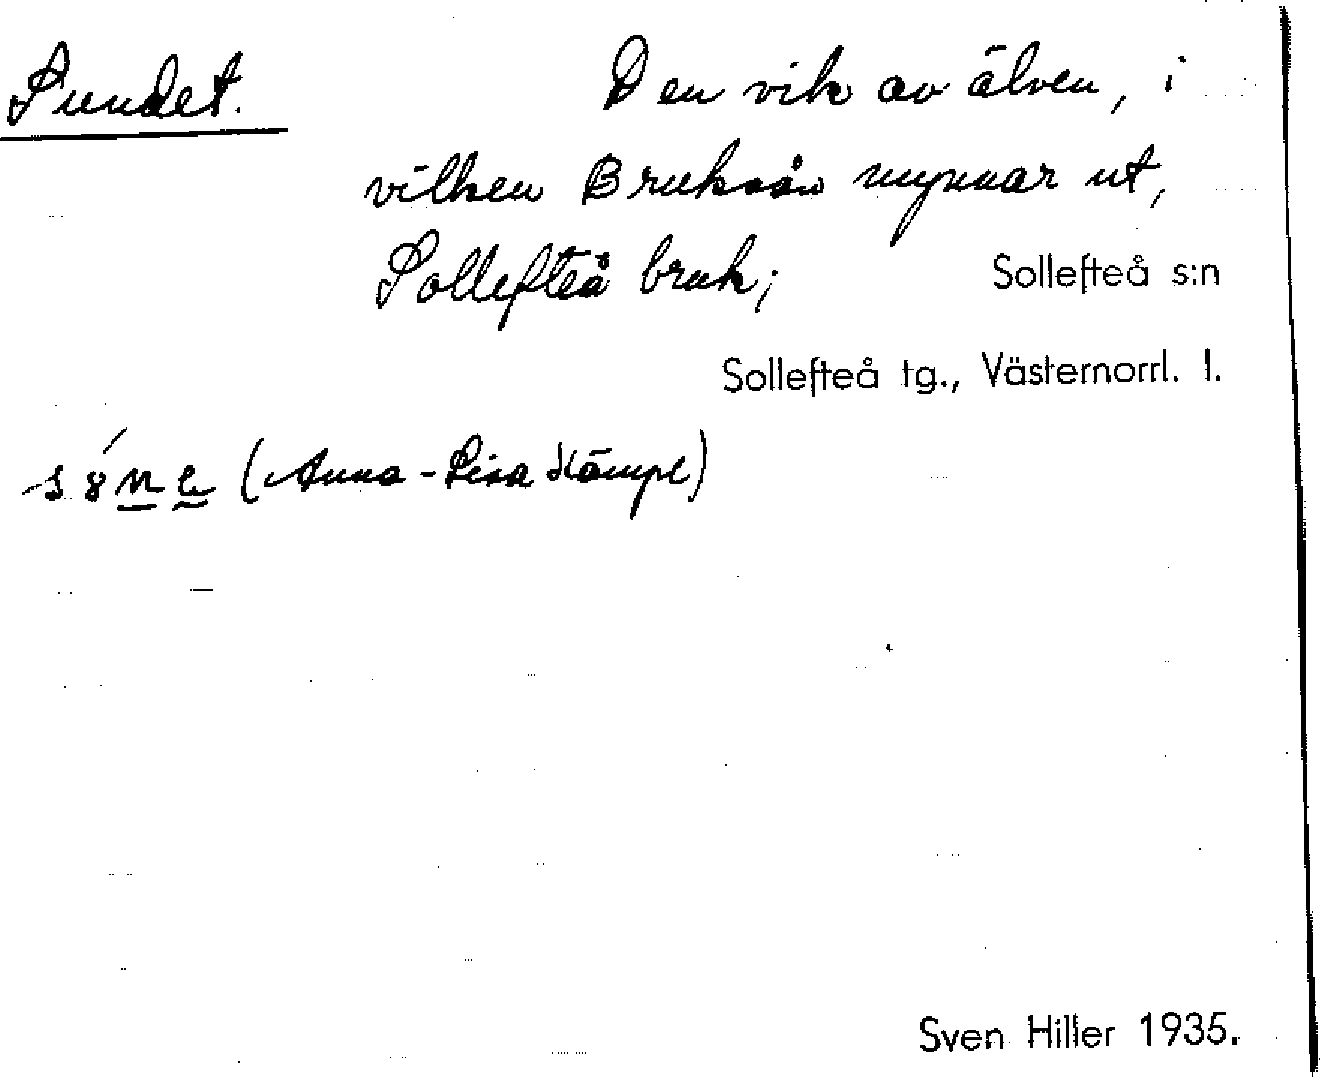 Sundet. Den vik av älven, i
vilken Bruksån mynnar ut,
Sollefteå bruk; Sollefteå s:n
Sollefteå tg., Västernorrl. l.
(Anna-Lisa Kämpe)
Sven Hiller 1935.